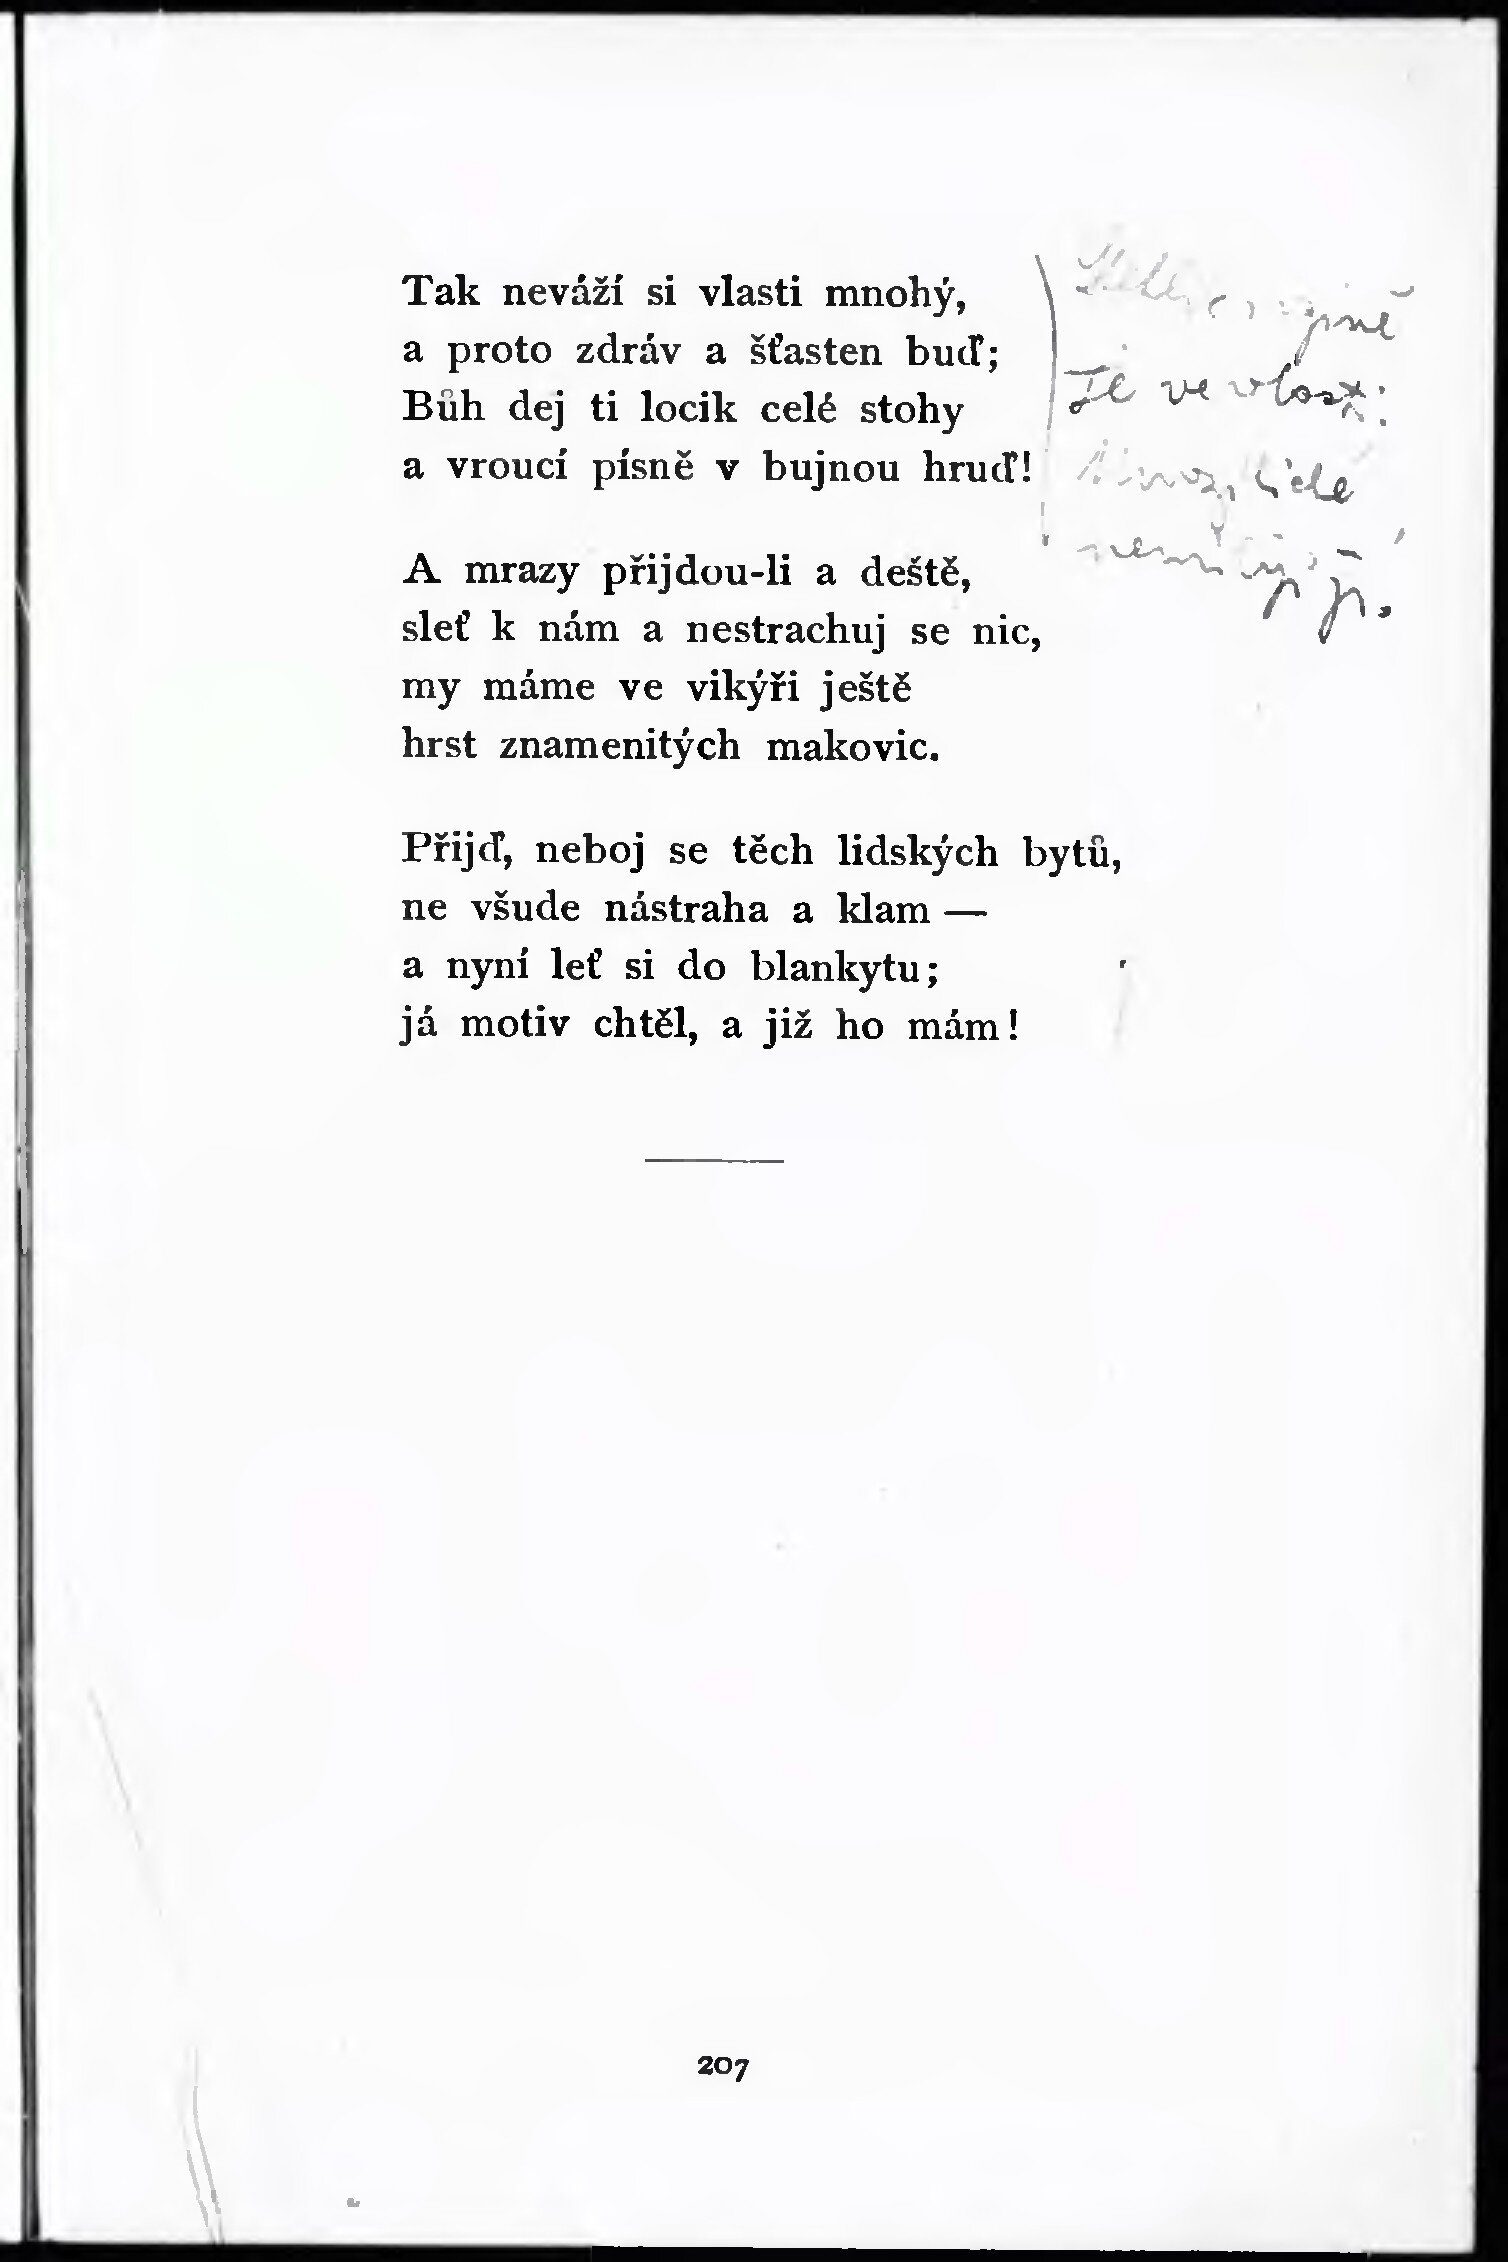 Tak neváží si vlasti mnohý,
a proto zdráv a šťasten buď;
Bůh dej ti locik celé stohy
a vroucí písně v bujnou hruď!
Je ve vlasti
A mrazy přijdou-li a deště,
sleť k nám a nestrachuj se nic,
my máme ve vikýři ještě
hrst znamenitých makovic.
Přijď, neboj se těch lidských bytů,
ne všude nástraha a klam —
a nyní leť si do blankytu;
já motiv chtěl, a již ho mám!
207